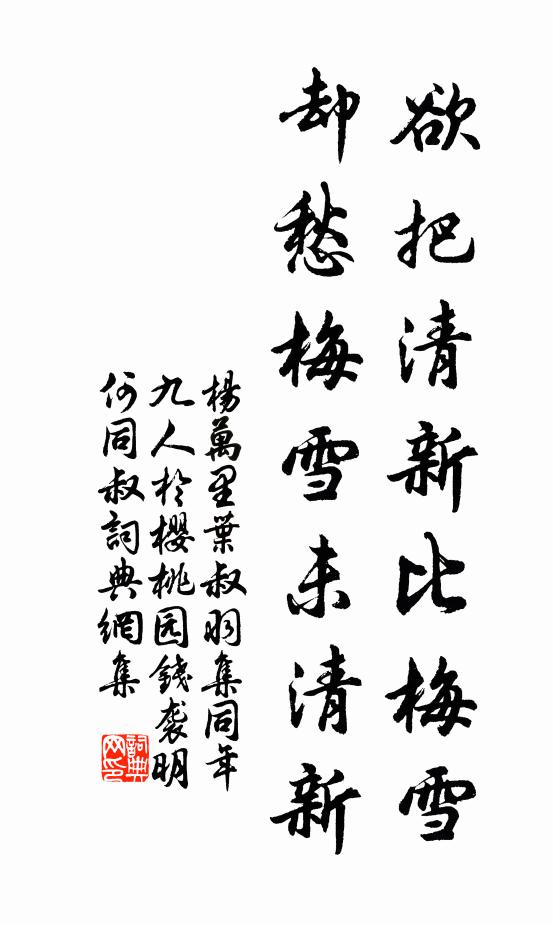 欲把清新比梅雪
却愁梅雪未清新
楊萬里葉叔羽集同年
九人於櫻桃园錢袭明
何同叔詞典網集
詞典
网印